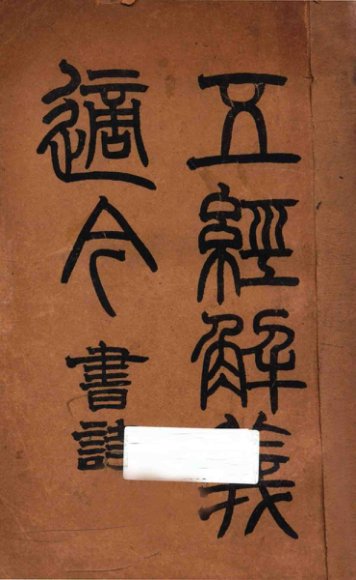 五經解義
適今
書